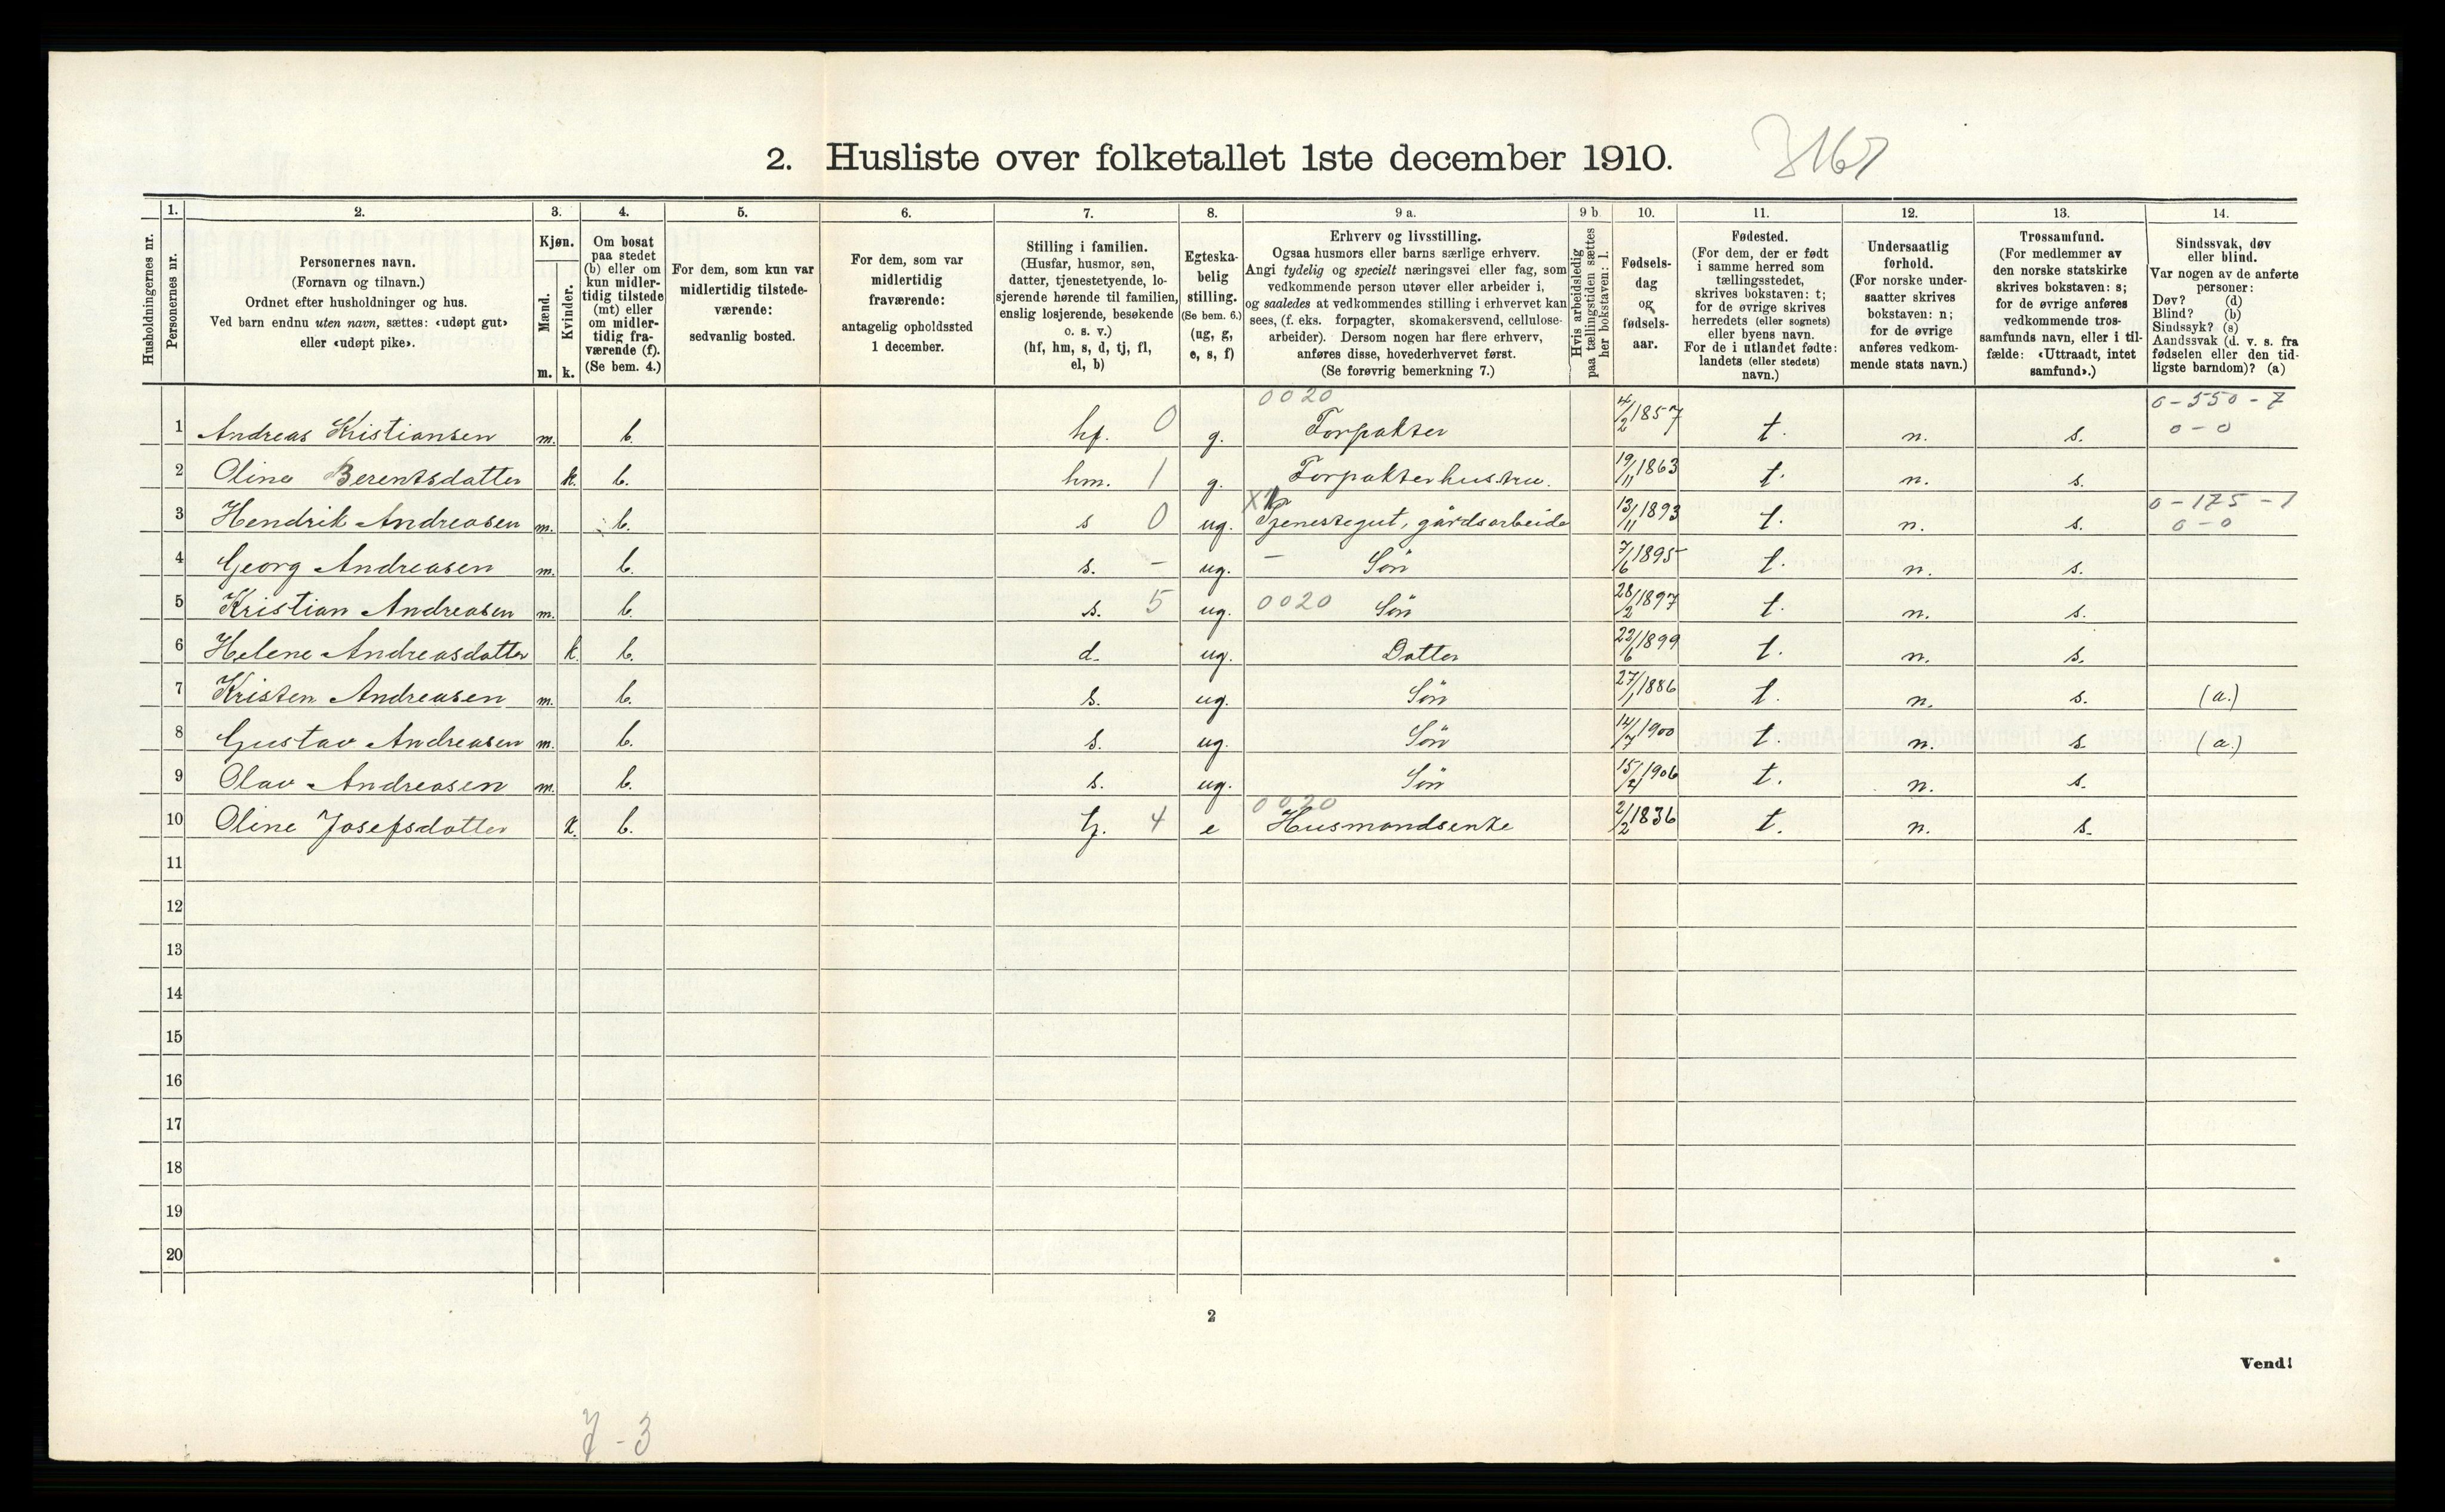 2. Husliste over folketallet 1ste december 1910.
Husholdningernes nr.
1. Personernes nr.
2. Personernes navn. (Fornavn og tilnavn.) Ordnet efter husholdninger og hus. Ved barn endnu uten navn, sættes: «udøpt gut» eller «udøpt pike».
3. Kjøn. Mænd. m. Kvinder. k.
4. Om bosat paa stedet (b) eller om kun midlertidig tilstede (mt) eller om midlertidig fraværende (f). (Se bem. 4.)
5. For dem, som kun var midlertidig tilstedeværende: sedvanlig bosted.
6. For dem, som var midlertidig fraværende: antagelig opholdssted 1 december.
7. Stilling i familien. (Husfar, husmor, søn, datter, tjenestetyende, losjerende hørende til familien, enslig losjerende, besøkende o. s. v.) (hf, hm, s, d, tj, fl, el, b)
8. Egteskabelig stilling. (Se bem. 6.) (ug, g, e, s, f)
9 a. Erhverv og livsstilling. Ogsaa husmors eller barns særlige erhverv. Angi tydelig og specielt næringsvei eller fag, som vedkommende person utøver eller arbeider i, og saaledes at vedkommendes stilling i erhvervet kan sees, (f. eks. forpagter, skomakersvend, cellulosearbeider). Dersom nogen har flere erhverv, anføres disse, hovederhvervet først. (Se forøvrig bemerkning 7.)
9 b. Hvis arbeidsledig paa tællingstiden sættes her bokstaven: l.
10. Fødselsdag og fødselsaar.
11. Fødested. (For dem, der er født i samme herred som tællingsstedet, skrives bokstaven: t; for de øvrige skrives herredets (eller sognets) eller byens navn. For de i utlandet fødte: landets (eller stedets) navn.)
12. Undersaatlig forhold. (For norske undersaatter skrives bokstaven: n; for de øvrige anføres vedkommende stats navn.)
13. Trossamfund. (For medlemmer av den norske statskirke skrives bokstaven: s; for de øvrige anføres vedkommende trossamfunds navn, eller i tilfælde: «Uttraadt, intet samfund».)
14. Sindssvak, døv eller blind. Var nogen av de anførte personer: Døv? (d) Blind? (b) Sindssyk? (s) Aandssvak (d. v. s. fra fødselen eller den tidligste barndom)? (a)
0020 0-550-7
1 Andreas Kristiansen m. b. hf. 0 g. Forpakter 4/2 1857 t. n. s. 0-0
2 Oline Berentsdatter k. b. hm. 1 g. Forpakterhustru. 19/11 1863 t. n. s.
3 Hendrik Andreasen m. b. s 0 ug. Tjenestegut, gårdsarbeide 13/11 1893 t. n. s. 0-175-1 0-0
4 Georg Andreasen m. b. s. - ug. - Sön 7/6 1895 t. n. s.
5 Kristian Andreasen m. b. s. 5 ug. 0020 Sön 28/2 1897 t. n. s.
6 Helene Andreasdatter k. b. d. ug. Datter 22/6 1899 t. n. s.
7 Kristen Andreasen m. b. s. ug. Sön 27/1 1886 t. n. s. (a.)
8 Gustav Andreasen m. b. s. ug. Sön 14/7 1900 t. n. s. (a.)
9 Olav Andreasen m. b. s. ug. Sön 15/4 1906 t. n. s.
10 Oline Josefsdatter k. b. tj. 4 e 0020 Husmandsenke 2/2 1836 t. n. s.
11
12
13
14
15
16
17
18
19
20
2
Vend!
7-3